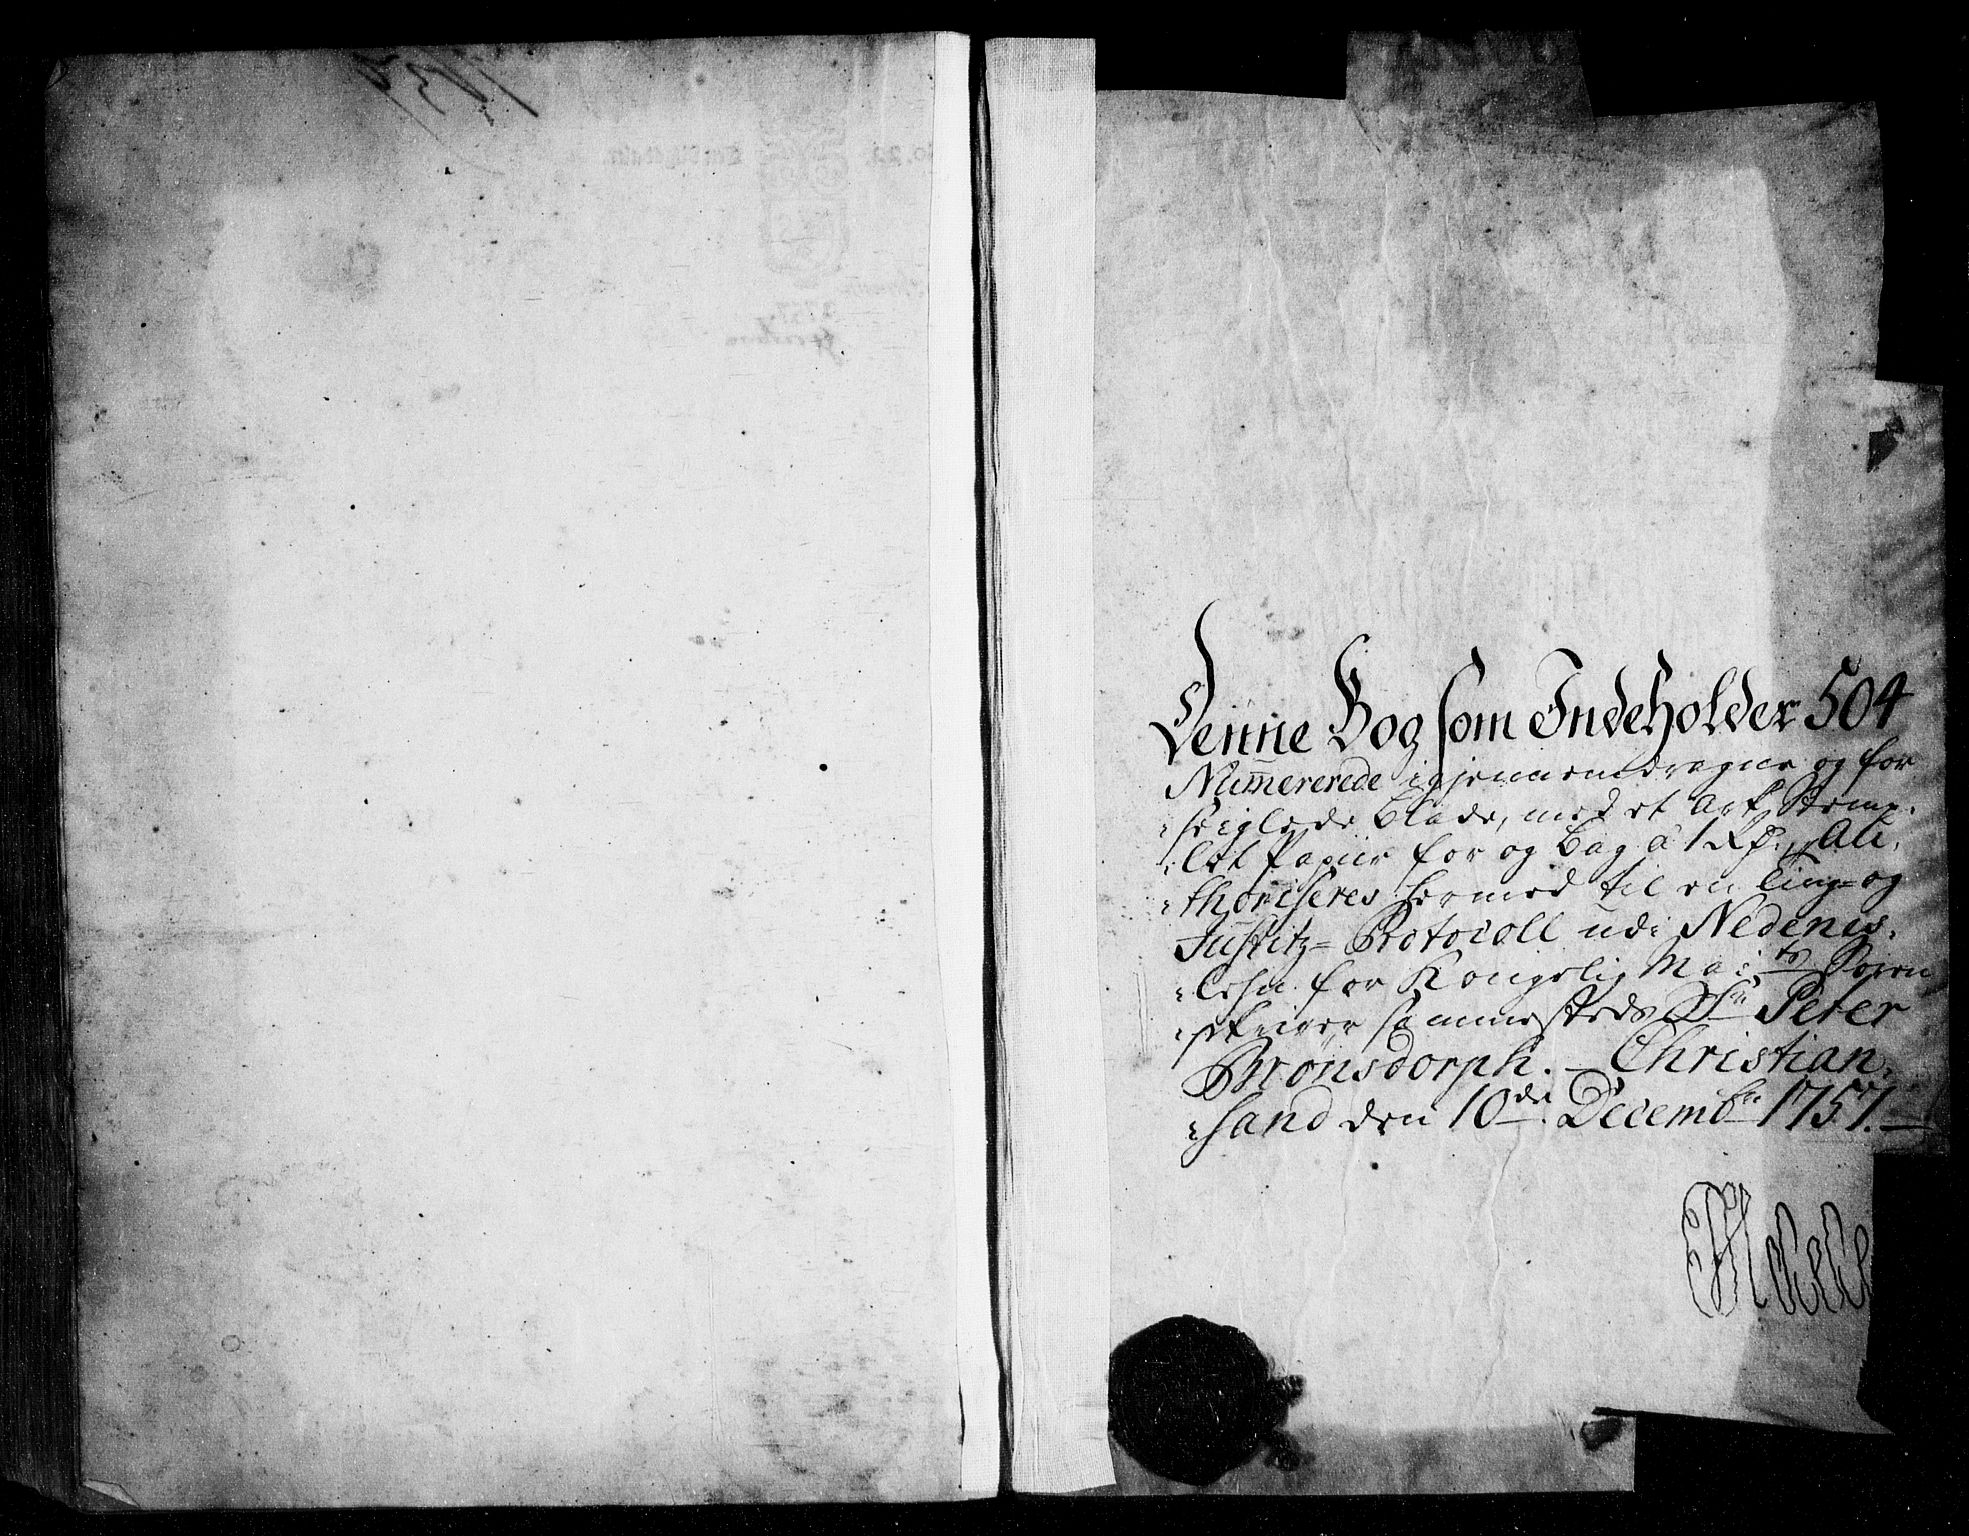 Denne Bog som Indeholder 504
Nummererede igjennemdragne og for
seiglede blade, med et Ark Stemp-
let Papiir for og bag à 1 Rdr., Au-
thoriseres hermed til en Ting- og
Justitz-Protocoll udi Nedenes-
Lehn for Kongelig Mai.ts Soren
skriver sammesteds Hr. Peter
Bronsdorph. – Christian-
sand den 10de. Decembr. 1757. –